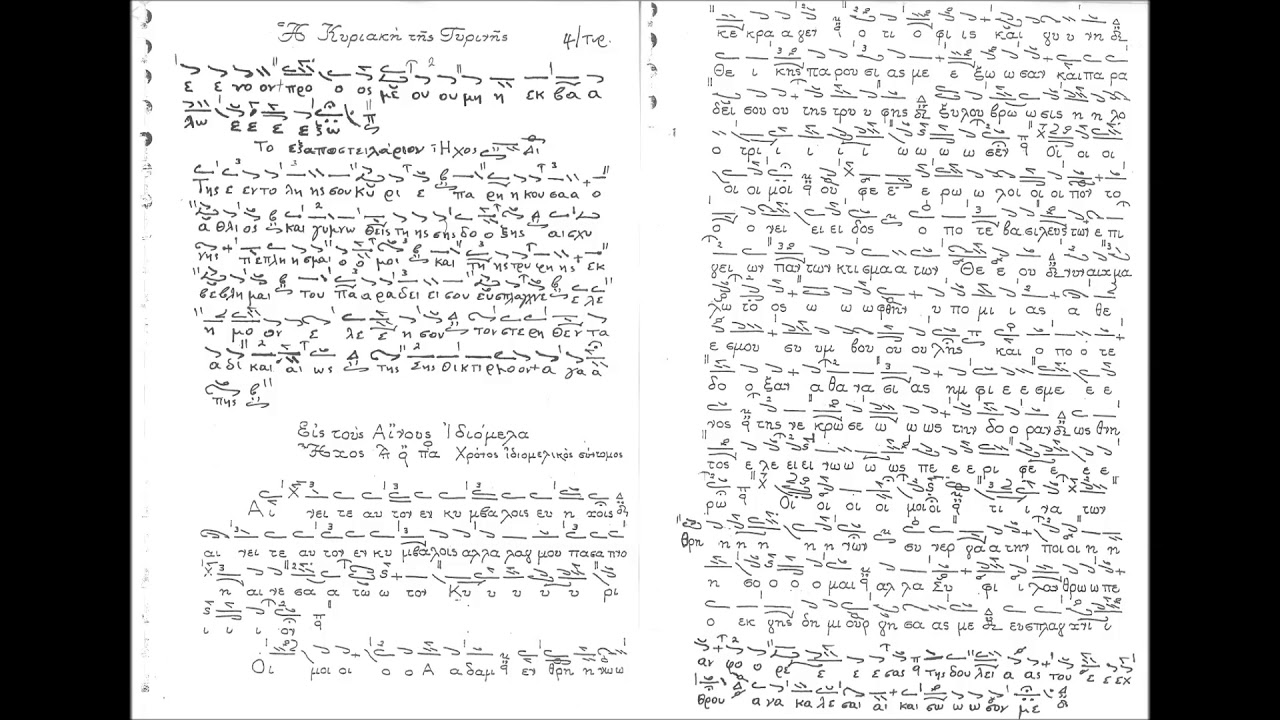 Ἡ Κυριακὴ τῆς Τυρινῆς
ε ε νο ον προ ο ος με ου ου μη η εκ βα α
λω ε ε ε ε ξω
Το εξαποστειλάριον Ἦχος
Της ε εντο λη ης σου Κυ ρι ε πα ρη η κου σα α ο
α θλι ος και γυμνω θεις τη ης σης δο ο ξης αι σχυ
νης πε πλη η σμαι ο ο μοι και της τρυ φη ης εκ
βε βλη μαι του πα α ρα δει ει σου ευσπλαχνε ε λε
η μο ον ε λε ε η σον τον στε ρη θεν τα
α δι και αι ως της σης θι κηρ αγα α
πης
Εἰς τοὺς Αἴνους Ἰδιόμελα
Ἦχος πα Χρόνος ἰδιομελικὸς σύντομος
Αι νει τε αυ τον εν κυ μβαλοις ευ η χοις
αι νει τε αυ τον εν κυ μβαλοις αλλα λαγ μου πασα πνο
η αι νε σα α τω ω τον Κυ υ υ υ υ ρι
ι ι ι ον
Οι μοι οι ο ο Α α δαμ εν θρη η νω ω
κε κρα α γεν ο τι ο φι ις και γυ υ νη
Θε ι κης πα ρου σι ας με ε ξω ω σαν και πα ρα
δεί σου ου της τρυ υ φης ξυλου βρω ω σις η η λο
ο τρι ι ι ι ι ω ω ω ω σεν Οι οι οι
οι οι μοι ου φε ε ε ρω ω λοι οι οι πον το
ο ο νει ει ει δος ο πο τε βα σιλευς των ε πι
γει ων παν των κτι σμα α των Θε ε ου νυν αιχμα
λω το ος ω ω ω φθην υ πο μι ι ας α θε
ε σμου συ υμ βου ου ου λης και ο πο ο τε
δο ο ξαν α θα να σι ας ημ φι ε ε σμε ε ε
νος της νε κρω σε ω ω ως την δο ο ραν ως θνη
τος ε λε ει ει νω ω ω ως πε ε ε ρι φε ε ε ε
ρω Οι οι οι οι μοι οι τι ι να των
θρη η η η η η νων συ νερ γα α την ποι οι η η
η σο ο ο ο μαι αλ λα Συ φι ι λαν θρω ω πε
ο εκ γης δη μι ουρ γη σα ας με ευσπλαγ χνι ι
αν φο ο ρε ε ε ε σας της δου λει α ας του ε ε εχ
θρου α να κα λε σαι αι και σω ω ω ω σον με